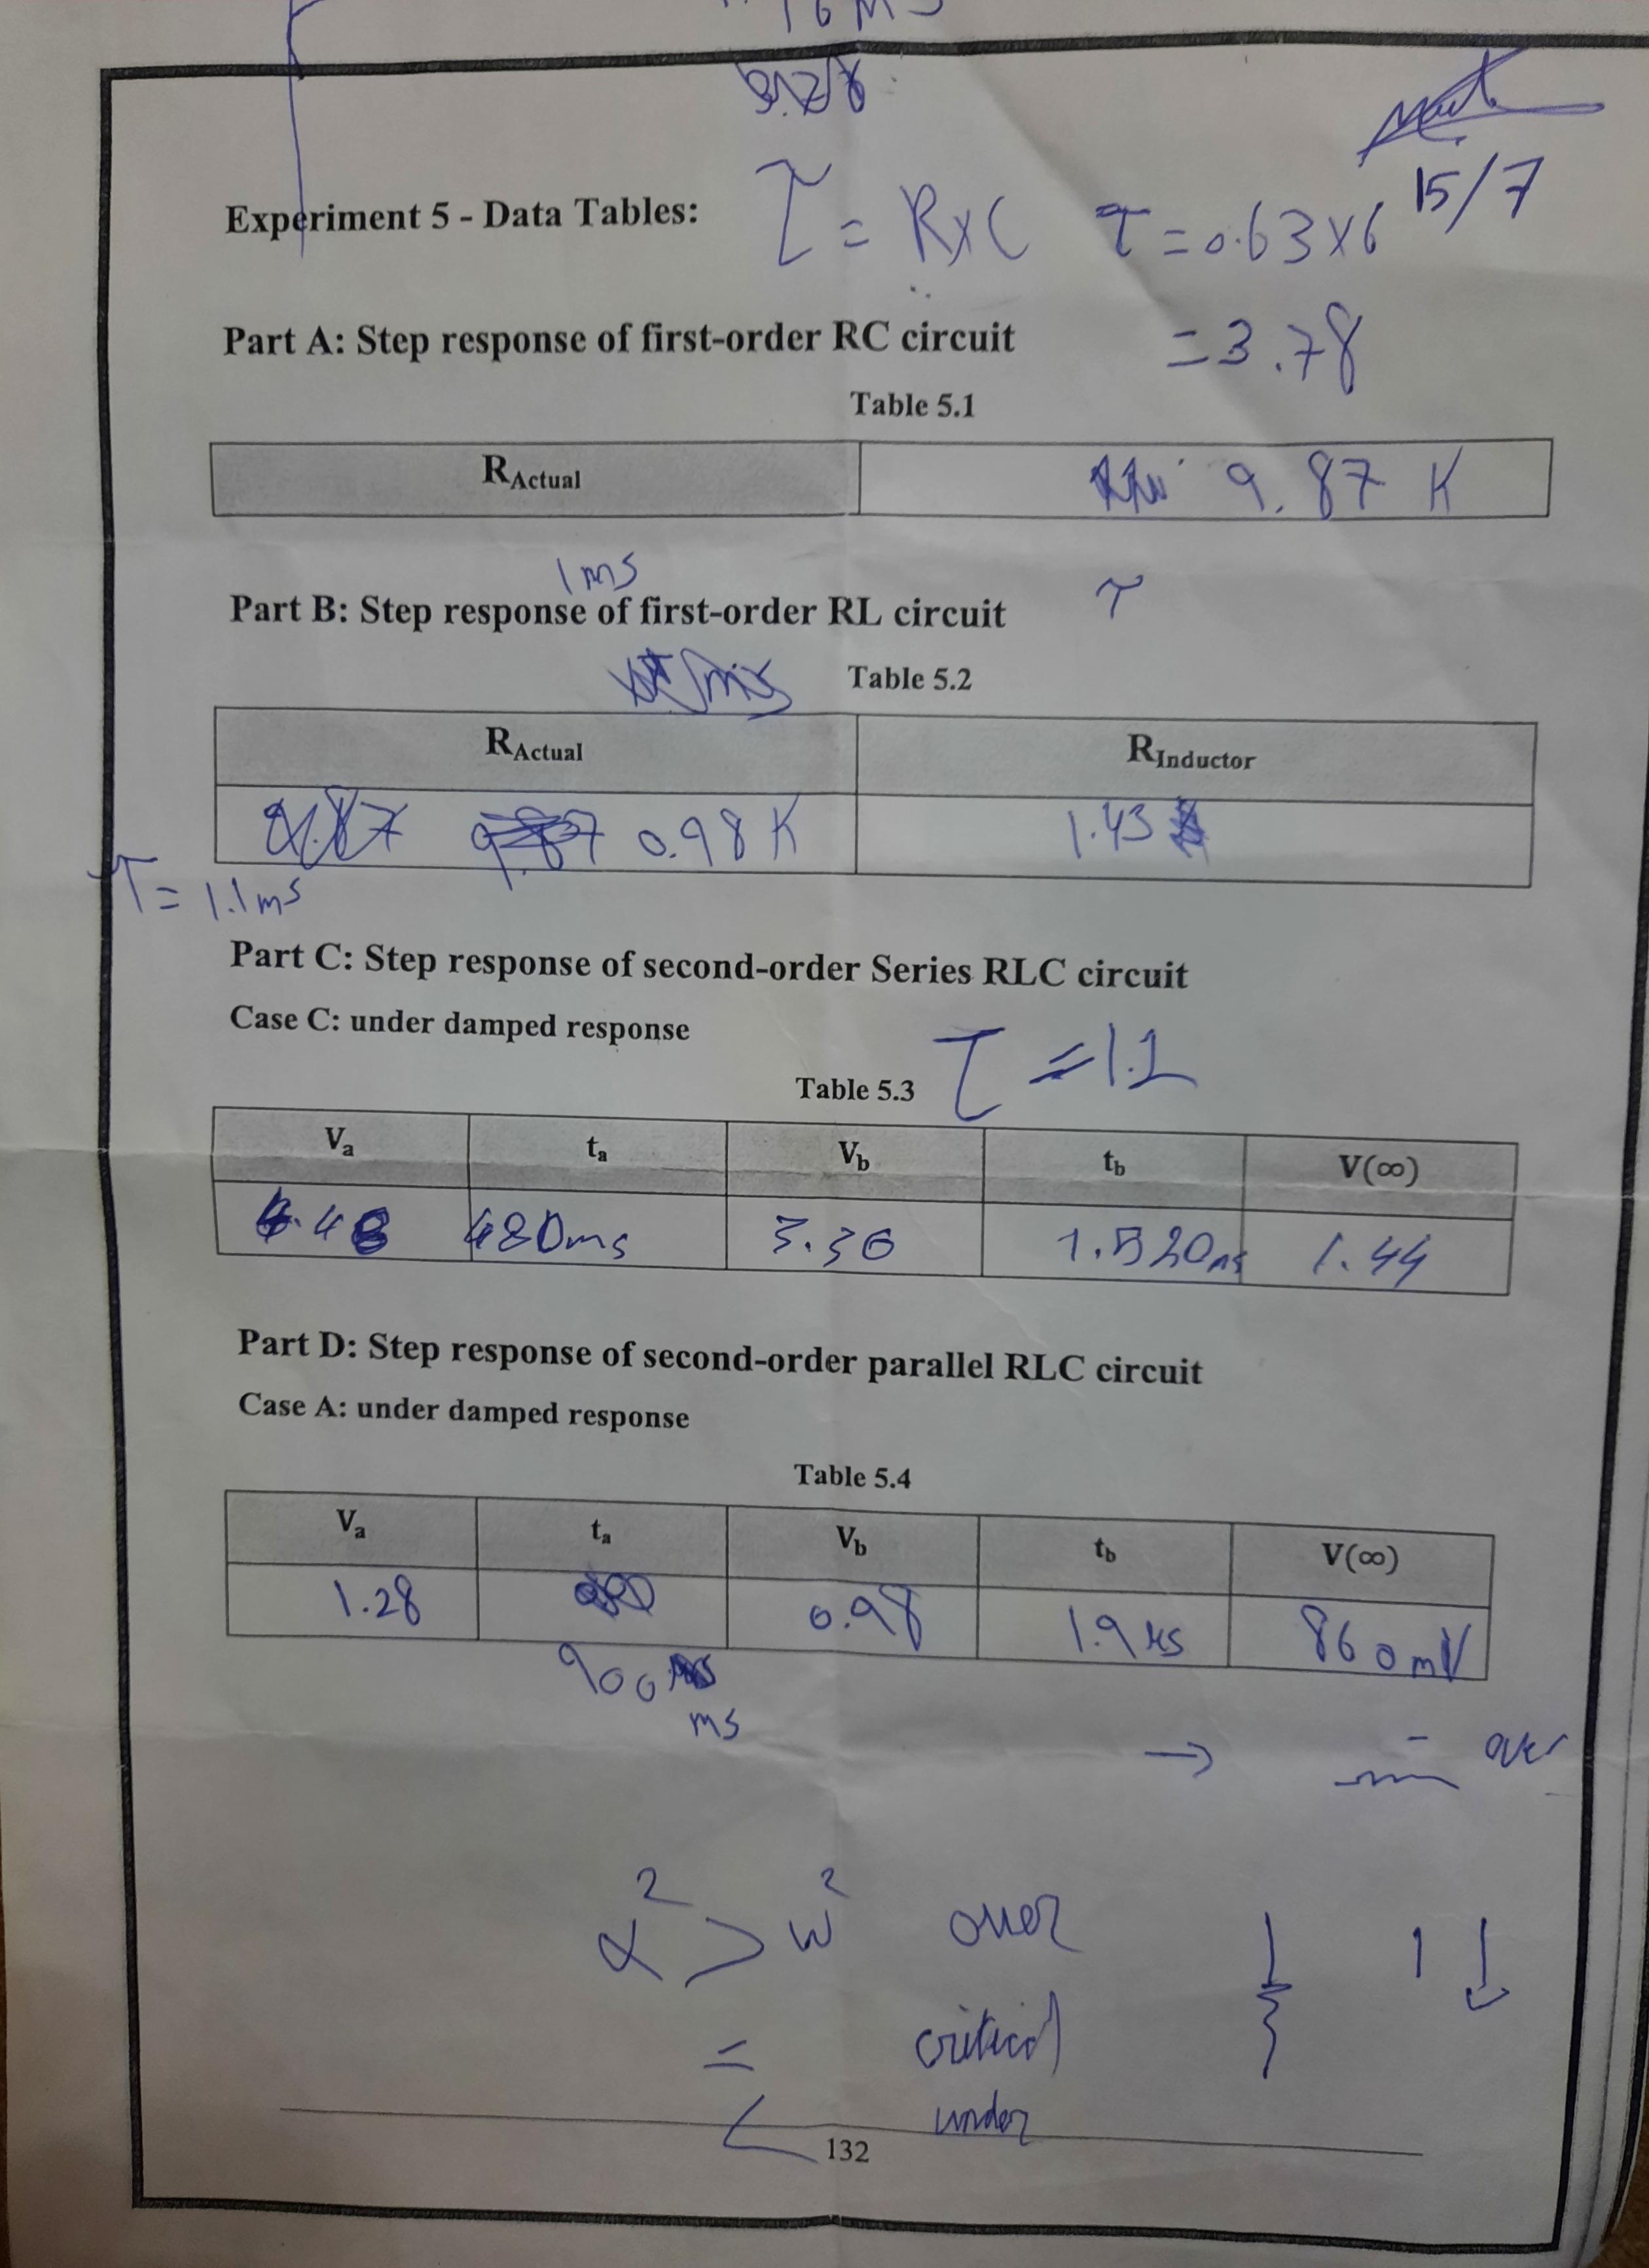 16 ms
Experiment 5 - Data Tables:
τ = R×C
τ = 0.63×6
15/7
= 3.78
Part A: Step response of first-order RC circuit
Table 5.1
R Actual
9.87 K
1ms
Part B: Step response of first-order RL circuit
τ
Table 5.2
R Actual
R Inductor
0.98 K
1.43
τ = 1.1ms
Part C: Step response of second-order Series RLC circuit
Case C: under damped response
τ = 1.1
Table 5.3
Va ta Vb tb V(∞)
4.48 480ms 3.36 1.520ms 1.44
Part D: Step response of second-order parallel RLC circuit
Case A: under damped response
Table 5.4
Va ta Vb tb V(∞)
1.28 0.98 1.9 860mV
900
ms
→ over
α² > w² over
= critical
< under
1 ↓
132